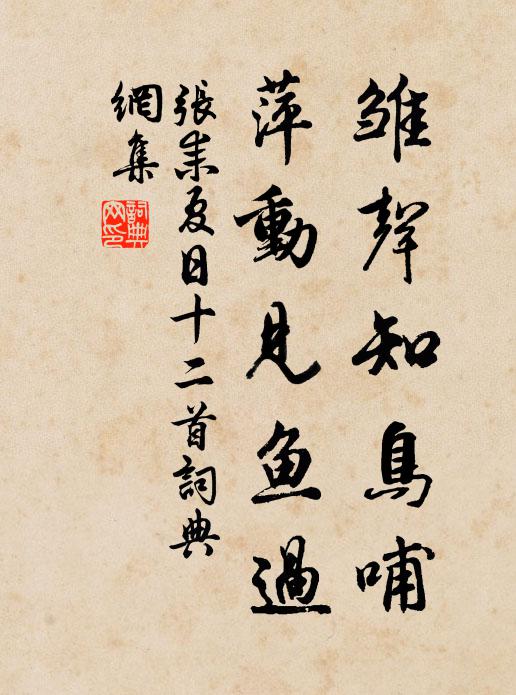 雏聲知鳥哺
萍動見鱼過
張耒夏日十二首詞典
網集
詞典
网印